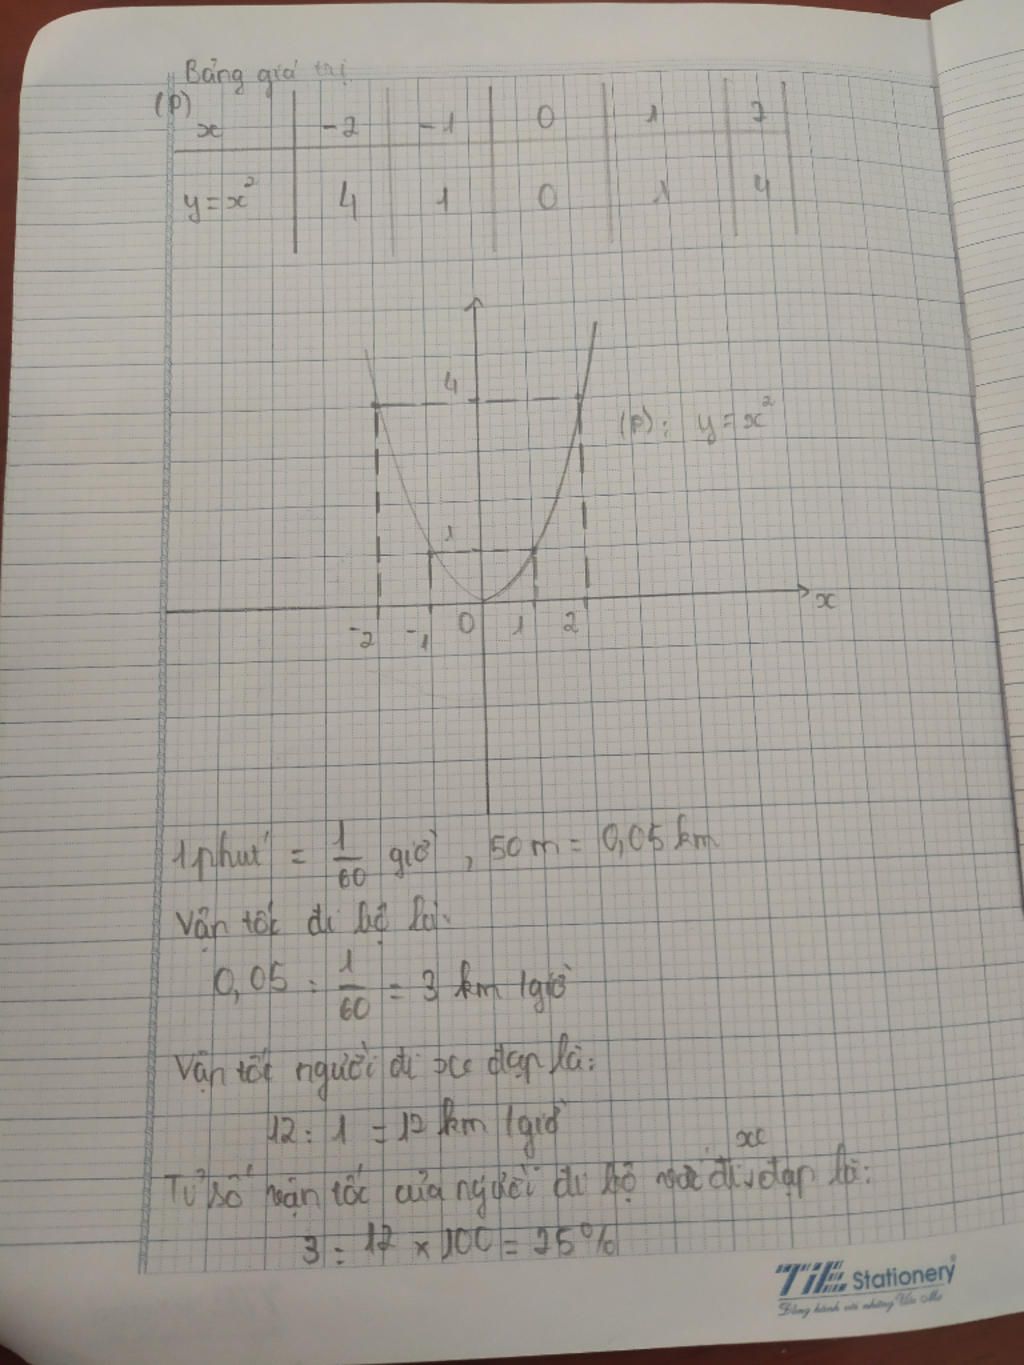 Bảng giá trị
(P)
x -2 -1 0 1 2
y = x² 4 1 0 1 4
4
(P): y = x²
1
x
-2 -1 0 1 2
1 phút = 1/60 giờ, 50 m = 0,05 km
Vận tốc đi bộ là:
0,05 : 1/60 = 3 km /giờ
Vận tốc người đi xe đạp là:
12 : 1 = 12 km /giờ
xe
Tỉ số vận tốc của người đi bộ với đi đạp là:
3 : 12 x 100 = 25%
TiE Stationery
Đồng hành với những Ước Mơ